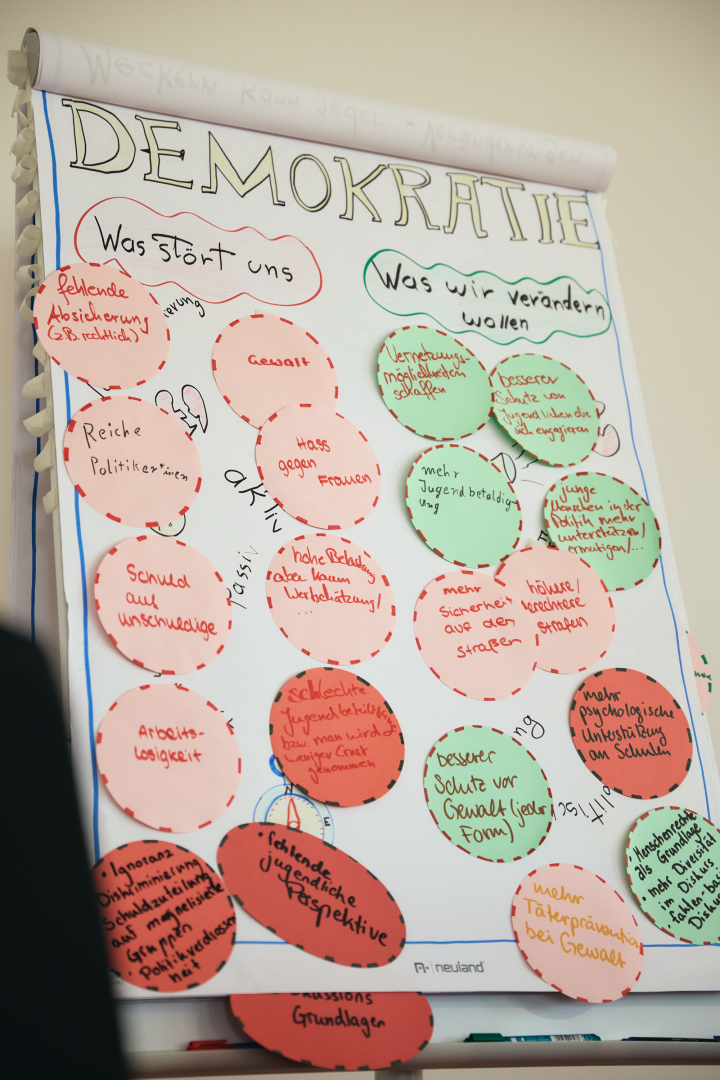 DEMOKRATIE
Was stört uns
fehlende
Absicherung
(z.B. rechtlich)
Gewalt
Reiche
Politiker*innen
Hass
gegen
Frauen
aktiv
Passiv
Schuld
auf
unschuldige
aber kaum
...
Arbeits-
losigkeit
schlechte
bzw. man wird
weniger Ernst
genommen
• Ignoranz
Diskriminierung
Schuldzuteilung
auf
Gruppen
• Politikverdrossen
heit
• fehlende
jugendliche
Perspektive
Grundlagen
Was wir verändern
wollen
Vernetzungs-
möglichkeiten
schaffen
besserer
Schutz von
Jugendlichen die
sich engagieren
mehr
Jugendbetaldig-
ung
junge
Menschen in der
Politik mehr
unterstützen/
ermutigen/...
mehr
Sicherheit
auf den
straßen
höhere/
strafen
mehr
psychologische
Unterstützung
an Schulen
besserer
Schutz vor
Gewalt (jeder
Form)
• Menschenrechte
als Grundlage
• mehr Diversität
im Diskurs
mehr
Täterprävention
bei Gewalt
neuland